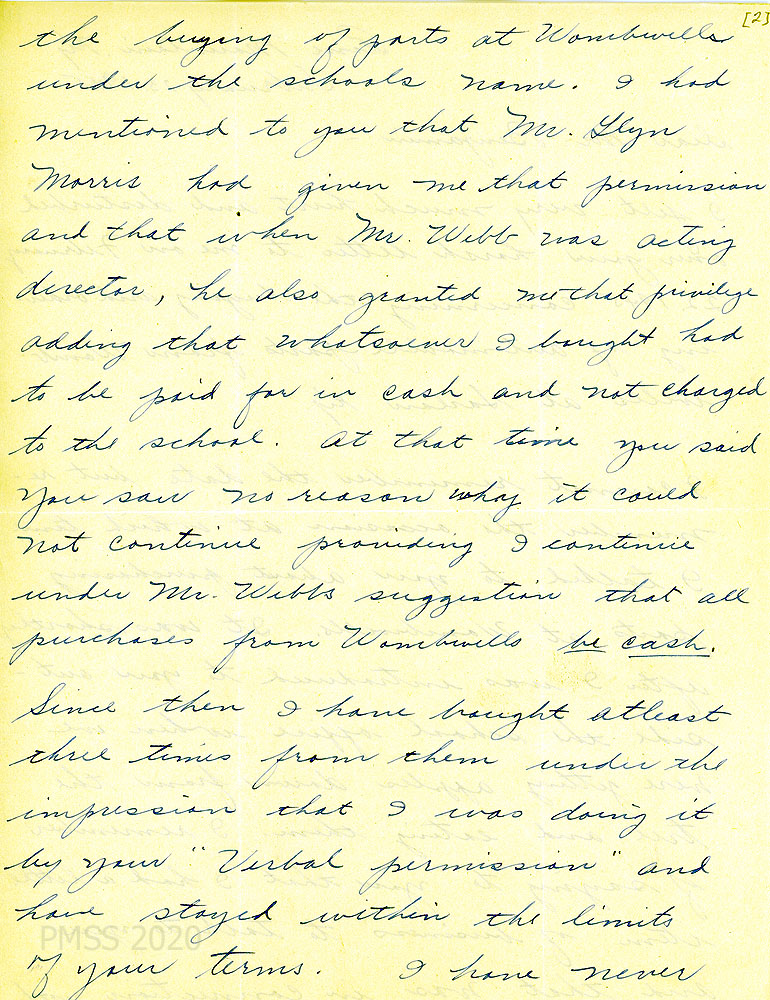 [2]
the buying of parts at Wombwells
under the schools name. I had
mentioned to you that Mr. Glyn
Morris had given me that permission
and that when Mr. Webb was acting
director, he also granted me that privilege
adding that whatsoever I bought had
to be paid for in cash and not charged
to the school. At that time you said
you saw no reason why it could
not continue providing I continue
under Mr. Webbs suggestion that all
purchases from Wombwells be cash.
Since then I have bought atleast
three times from them under the
impression that I was doing it
by your "Verbal permission" and
have stayed within the limits
of your terms. I have never
PMSS 2020